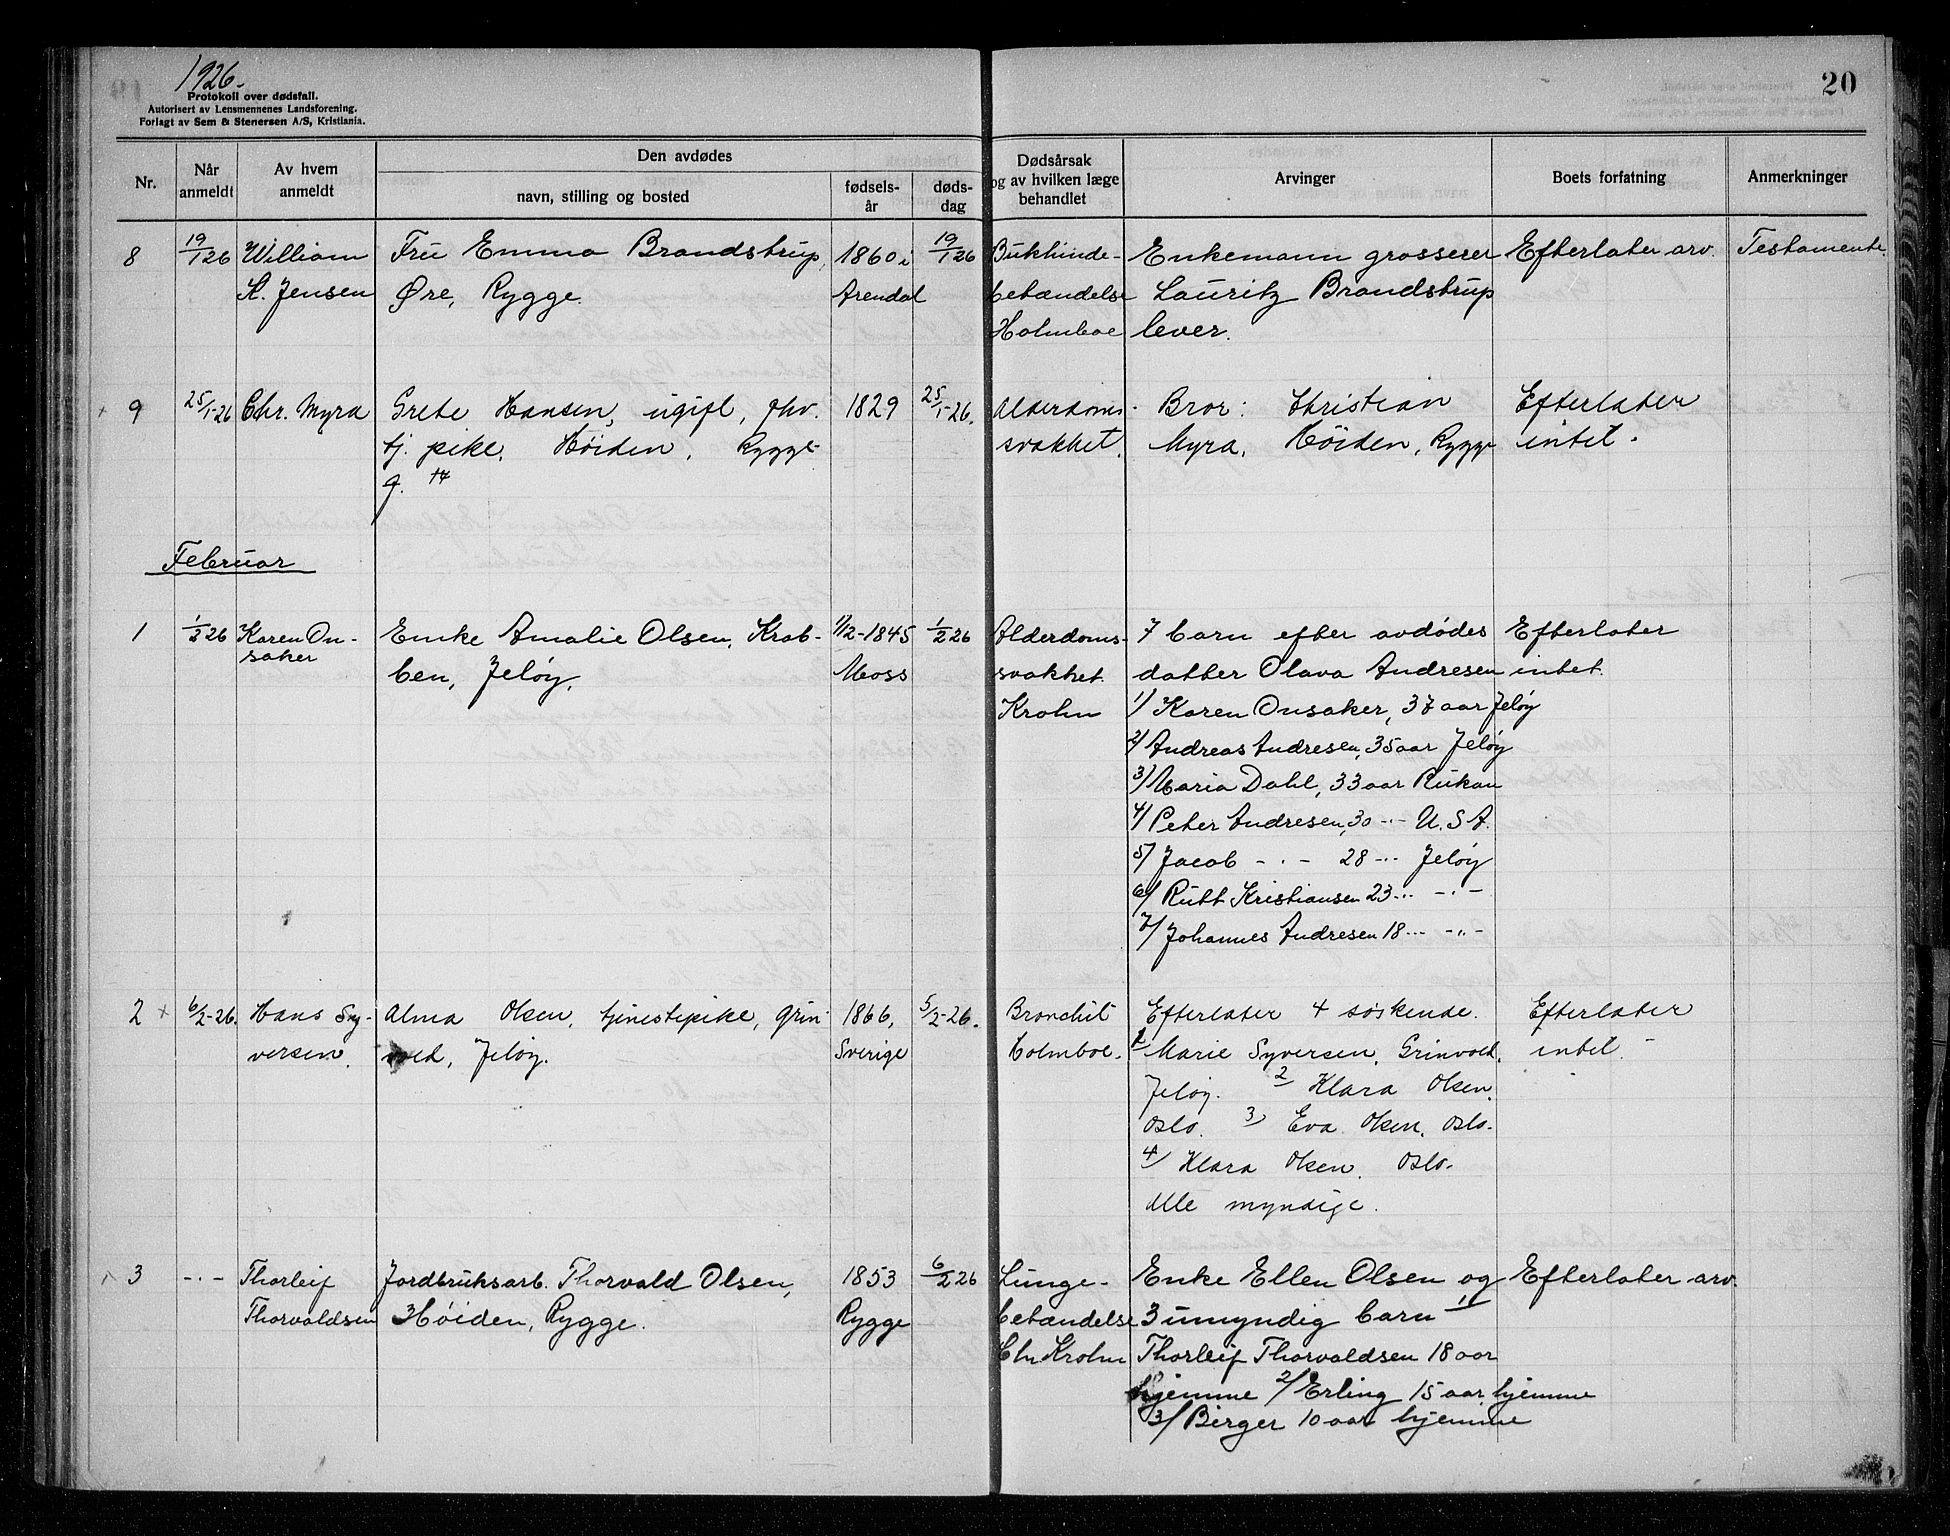 1926.
Protokoll over dødsfall.
Autorisert av Lensmennenes Landsforening.
Forlagt av Sem & Stenersen A/S, Kristiania.
20
Nr.
Når anmeldt
Av hvem anmeldt
Den avdødes
navn, stilling og bosted
fødsels-år
døds-dag
Dødsårsak og av hvilken læge behandlet
Arvinger
Boets forfatning
Anmerkninger
8
19/1 26
William
K. Jensen
Fru Emma Brandstrup,
Øre, Rygge.
1860 i
Arendal
19/1 26
Bukhinde-
betændelse
Holmboe
Enkemann grosserer
Lauritz Brandstrup
lever.
Efterlater arv.
Testamente.
9
25/1-26
Chr. Myra
Grete Hansen, ugift, fhv.
tj. pike, Høiden, Rygge
1829
25/1-26.
Alderdoms-
svakhet.
Bror: Christian
Myra, Høiden, Rygge
Efterlater
intet.
Februar
1
1/2 26
Karen On-
saker
Enke Amalie Olsen, Krab-
ben, Jeløy.
11/2-1845
Moss
1/2 26
Alderdoms-
svakhet.
Krohn
7 barn efter avdødes
datter Olava Andresen
1/ Karen Onsaker, 37 aar Jeløy
2/ Andreas Andresen, 35 aar Jeløy
3/ Maria Dahl, 33 aar Rukan
4/ Peter Andresen, 30 -"- U.S.A.
5/ Jacob -"- 28 -"- Jeløy
6/ Rutt Kristiansen 23 -"- -"-
7/ Johannes Andresen 18 -"- -"-
Efterlater
intet.
2
6/2-26.
Hans Sy-
versen.
Alma Olsen, tjenestepike, Grin-
vold, Jeløy.
1866,
Sverige
5/2-26.
Bronchit
Holmboe.
Efterlater 4 søskende.
1/ Marie Syversen, Grinvold,
Jeløy. 2/ Klara Olsen,
Oslo. 3/ Eva Olsen, Oslo.
4/ Klara Olsen, Oslo.
Alle myndige.
Efterlater
intet.
3
-"-
Thorleif
Thorvaldsen
Jordbruksarb. Thorvald Olsen,
Høiden, Rygge.
1853
Rygge
6/2 26
Lunge-
betændelse
Chr Krohn
Enke Ellen Olsen og
3 umyndig barn 1/
Thorleif Thorvaldsen 18 aar
hjemme 2/ Erling 15 aar hjemme
3/ Birger 10 aar hjemme
Efterlater arv.